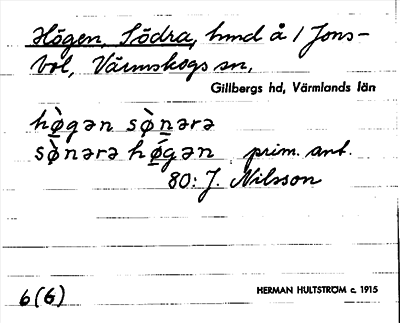 Högen, Södra, hmd å 1 Jons-
bol, Värmskogs sn.
Gillbergs hd, Värmlands län
hø̀gən sø̀nərə
sø̀nərə hǿgən prim. ant.
80: J. Nilsson
6(6)
HERMAN HULTSTRÖM c. 1915